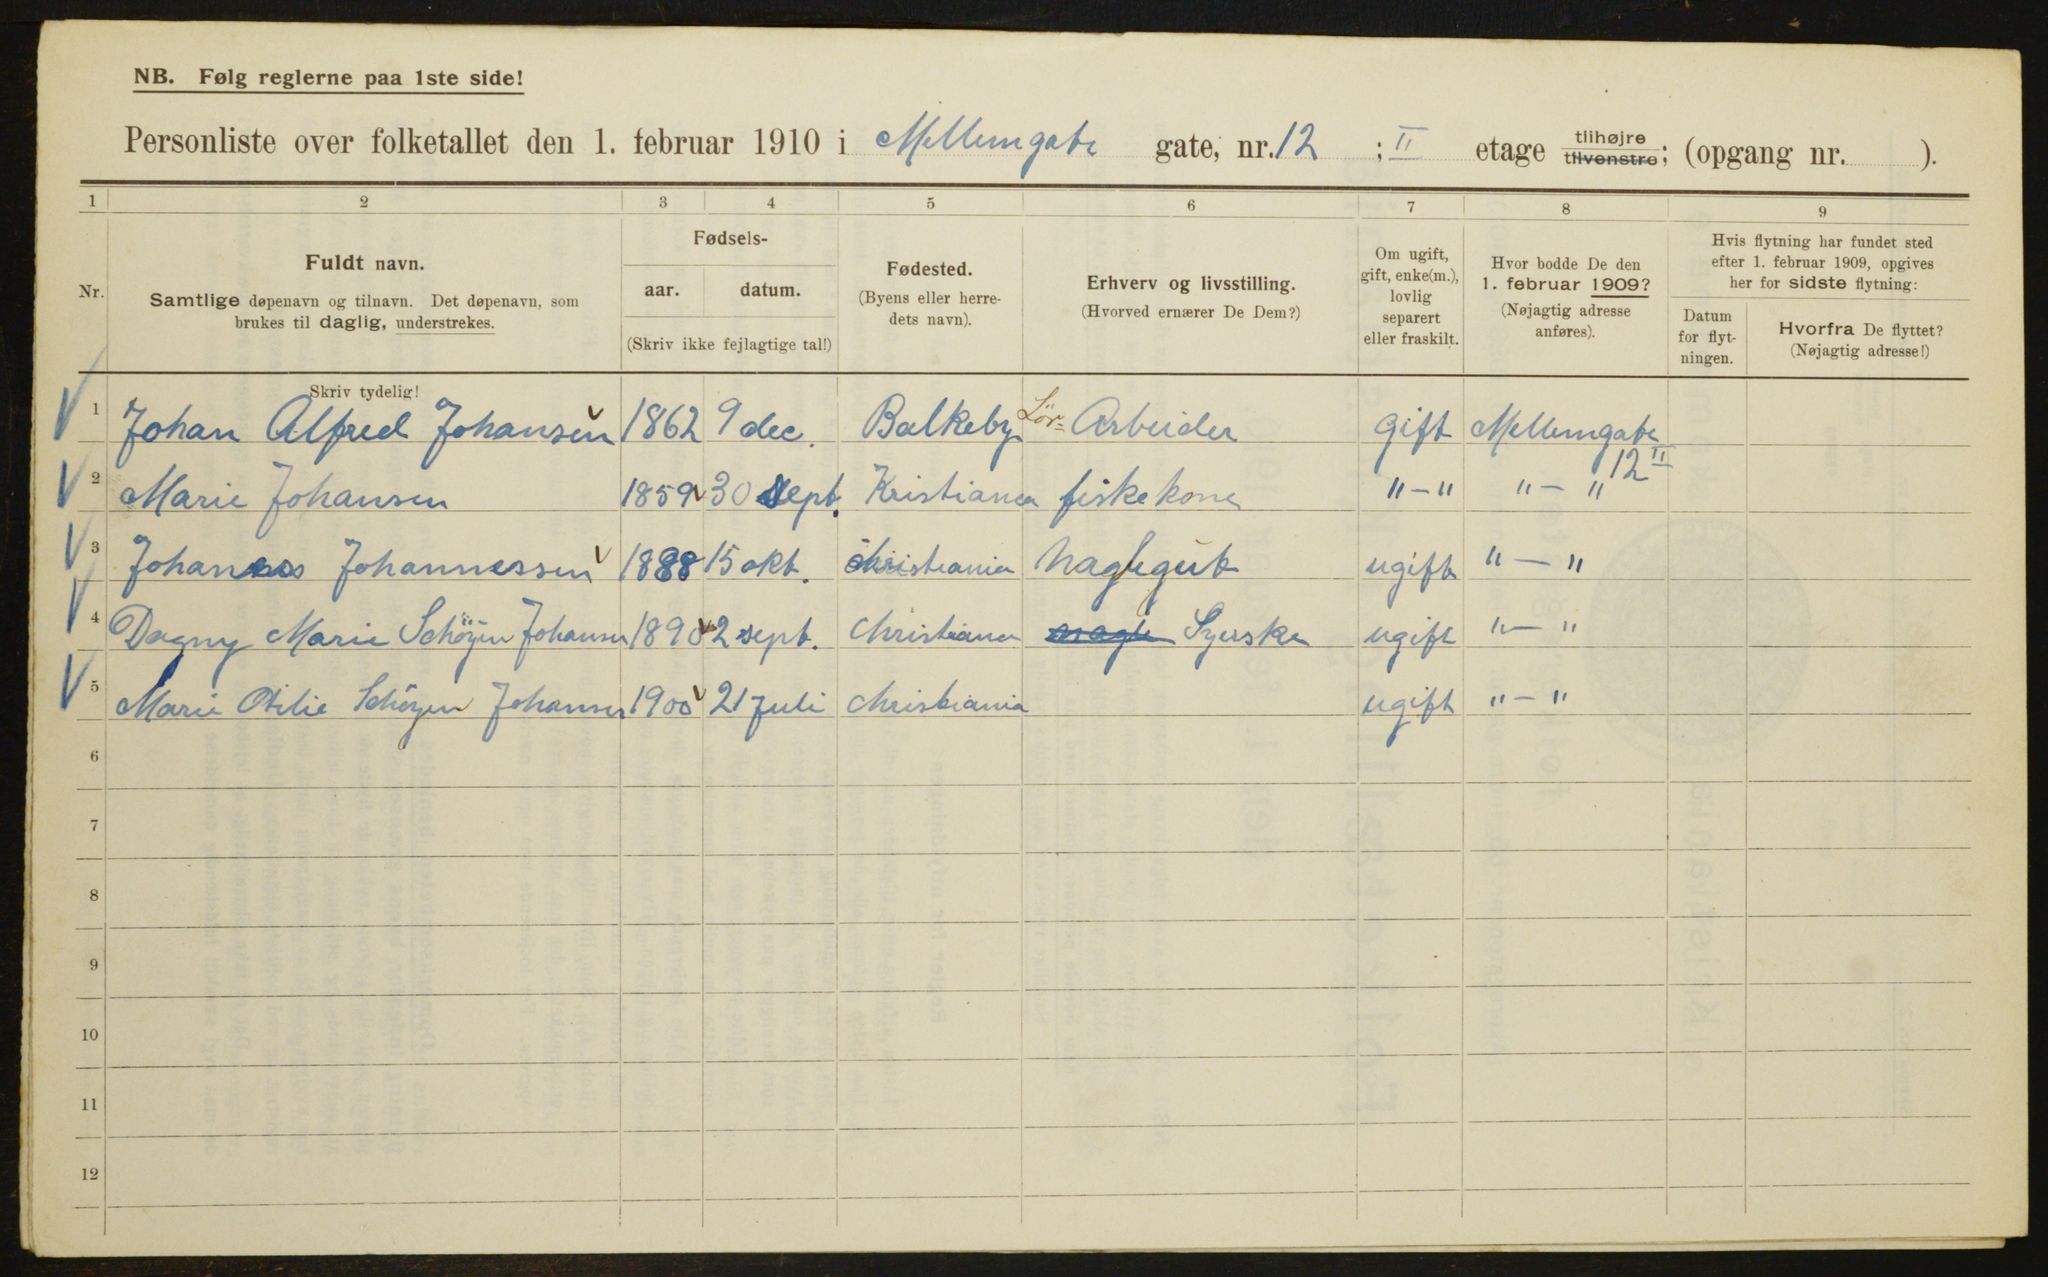 NB. Følg reglerne paa 1ste side!
Personliste over folketallet den 1. februar 1910 i Mellemgate gate, nr. 12 ; II etage tilhøjre tilvenstre; (opgang nr. ).
1 2 3 4 5 6 7 8 9
Nr.
Fuldt navn.
Samtlige døpenavn og tilnavn. Det døpenavn, som
brukes til daglig, understrekes.
Fødsels-
aar. datum.
(Skriv ikke fejlagtige tal!)
Fødested.
(Byens eller herre-
dets navn).
Erhverv og livsstilling.
(Hvorved ernærer De Dem?)
Om ugift,
gift, enke(m.),
lovlig
separert
eller fraskilt.
Hvor bodde De den
1. februar 1909?
(Nøjagtig adresse
anføres).
Hvis flytning har fundet sted
efter 1. februar 1909, opgives
her for sidste flytning:
Datum
for flyt-
ningen.
Hvorfra De flyttet?
(Nøjagtig adresse!)
Skriv tydelig!
1 Johan Alfred Johansen 1862 9 dec. Balkeby Lør- Arbeider gift Mellemgate
12 II
2 Marie Johansen 1859 30 sept. Kristiania fiskekone "-" "-"
3 Johannes Johannessen 1888 15 okt. Christiania Naglegut ugift "-"
4 Dagny Marie Schöyen Johansen 1890 2 sept. Christiania nagle Syerske ugift "-"
5 Marie Otilie Schöyen Johansen 1900 21 Juli Christiania ugift "-"
6
7
8
9
10
11
12